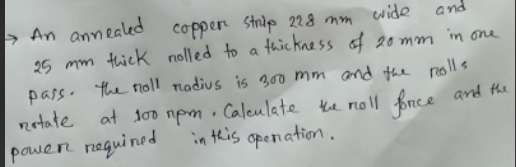 → An annealed copper strip 228 mm wide and
25 mm thick rolled to a thickness of 20 mm in one
pass. the roll radius is 300 mm and the rolls
rotate at 100 rpm. Calculate the roll force and the
power required in this operation.